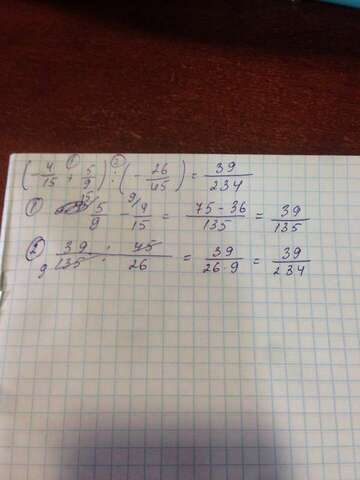 (-4/15 + 5/9) : (-26/45) = 39/234
① 5/9 - 4/15 = 75 - 36/135 = 39/135
② 39/135 : 45/26 = 39/26·9 = 39/234